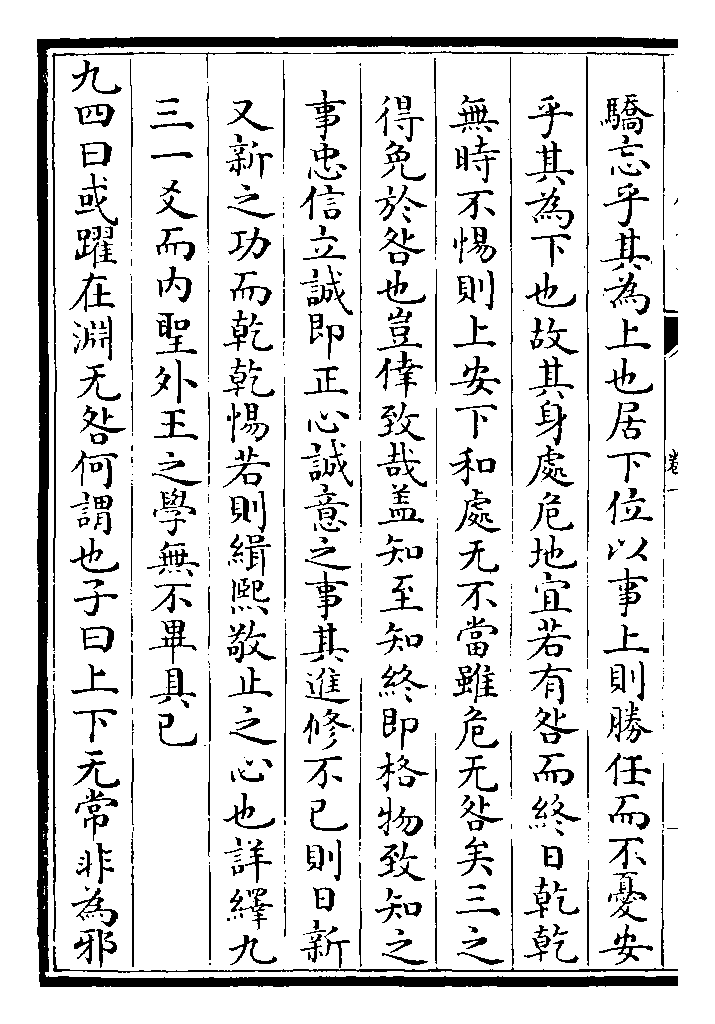 驕忘乎其為上也居下位以事上則勝任而不憂安
乎其為下也故其身處危地宜若有咎而終日乾乾
無時不惕則上安下和處无不當雖危无咎矣三之
得免於咎也豈倖致哉盖知至知終即格物致知之
事忠信立誠即正心誠意之事其進修不已則日新
又新之功而乾乾惕若則緝熙敬止之心也詳繹九
三一爻而内聖外王之學無不畢具已
九四曰或躍在淵无咎何謂也子曰上下无常非為邪